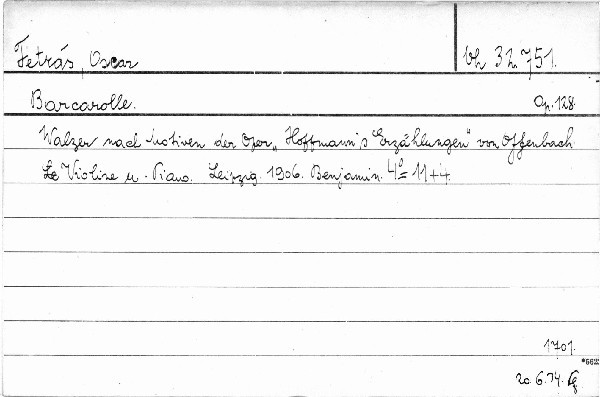 Fetrás, Oscar
Vh 32.751.
Barcarolle.
Op. 128.
Walzer nach Motiven der Oper „Hoffmann's Erzählungen" von Offenbach.
Violine u. Piano. Leipzig. 1906. Benjamin. 4° = 11+4.
1701.
*662
20.6.74.